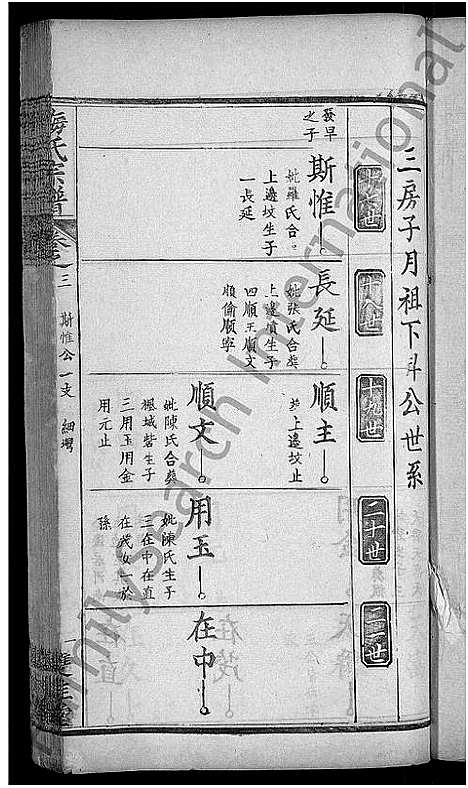 三房子月祖下斗公世系
十八世
十九世
二十世
發早
之子
斯惟
妣羅氏合
上邊坟生子
一長延
長延
妣张氏合葬
上邊墳生子
四順主順文
順偷順寧
順主
葬上邊坟止
順文
妣陳氏合葬
生子
三用玉用金
用元止
用玉
妣陳氏生子
三在中在直
在茂女一於
孫
在中
氏宗譜
三
斯惟公一支
FamilySearch International